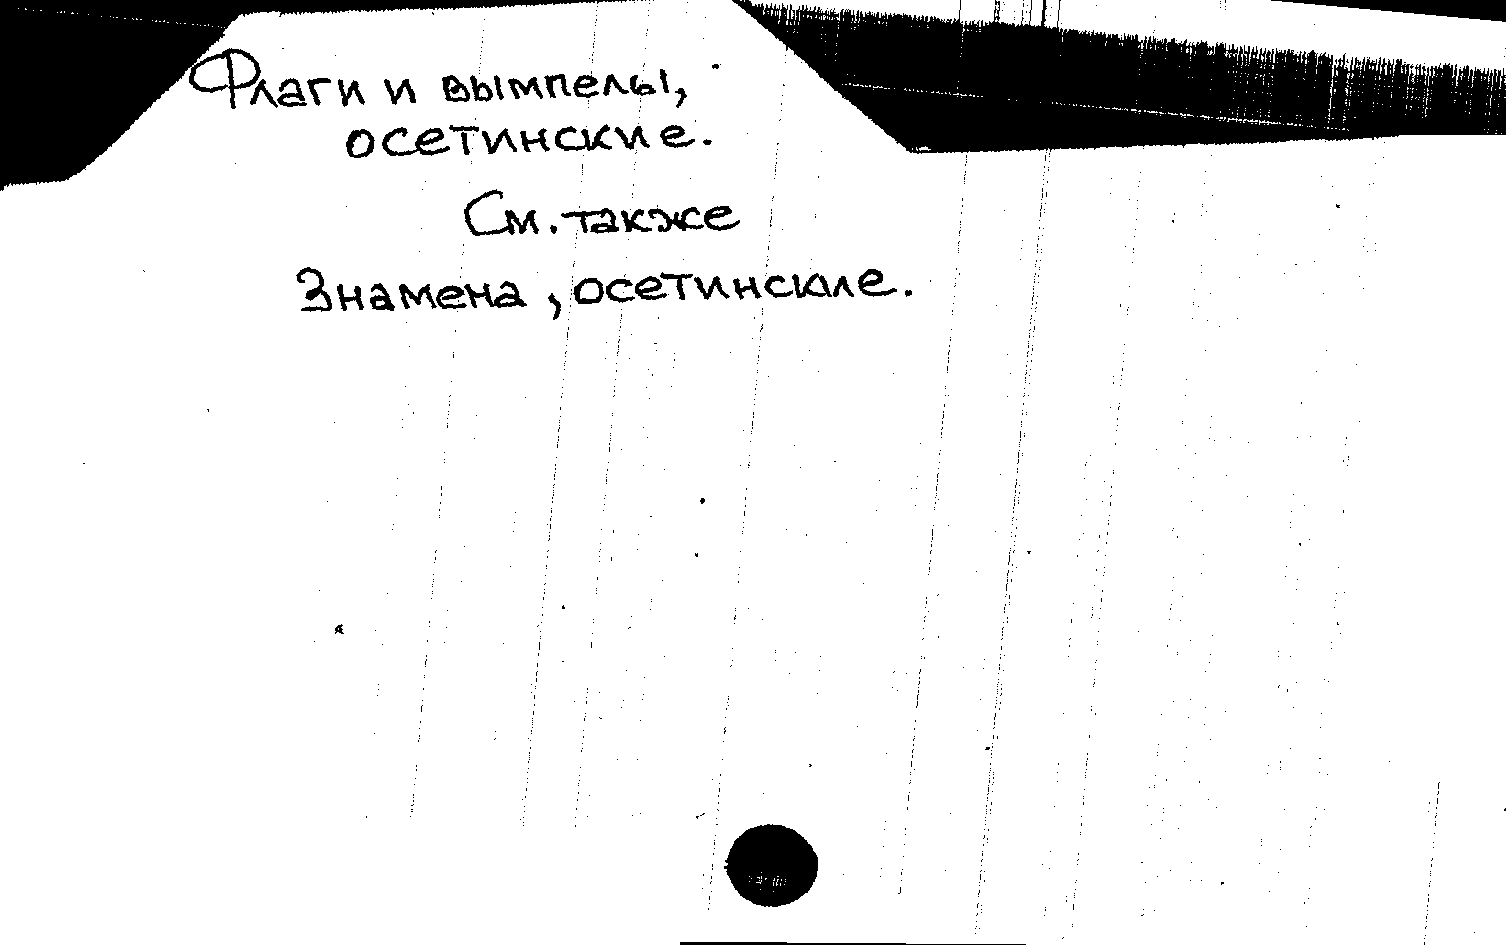 Флаги и вымпелы,
осетинские.
См. также
Знамена, осетинские.